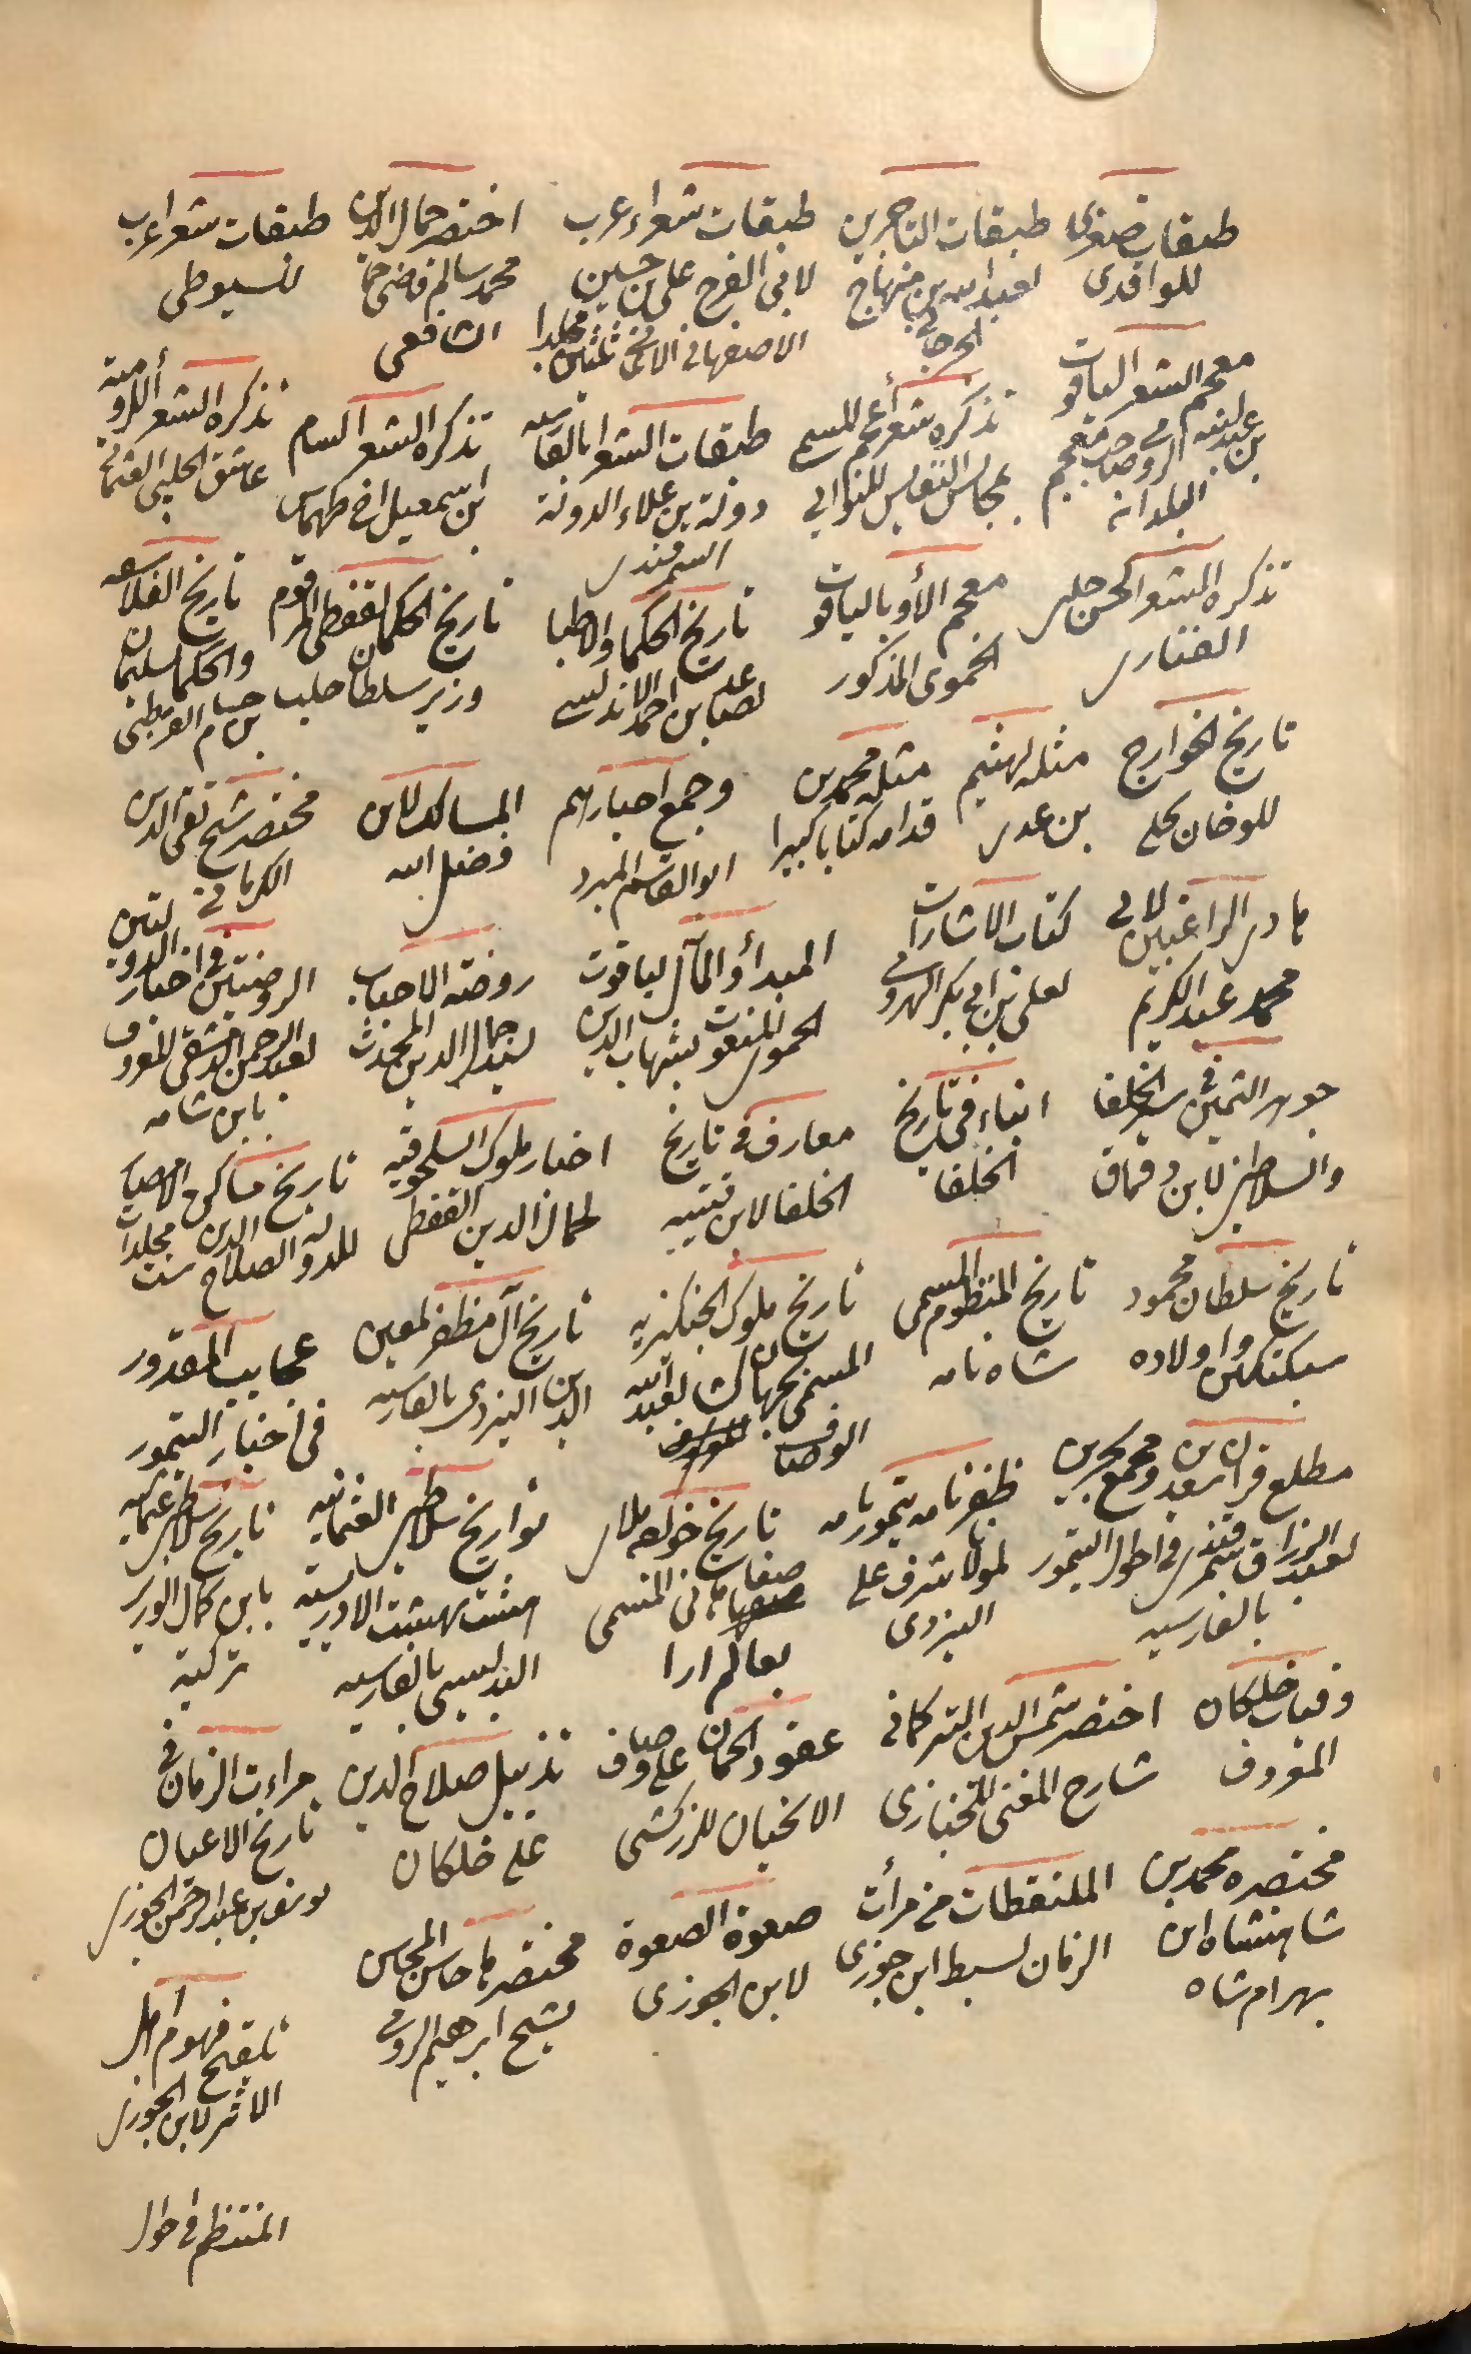 طبقات صغرى للواقدى
طبقات التاجرين لعبد الله بن منهاج الجرجانى
طبقات شعراء عرب لابى الفرج على بن حسين الاصفهانى الاغانى ثلثين مجلدا
اختصر جمال الدين محمد سالم قاضى حما الشافعى
طبقات شعراء عرب للسيوطى
معجم الشعرا لياقوت بن عبد الله الرومى صاحب معجم البلدان
تذكره شعراء عجم المسمى مجالس النفايس للنوايى
طبقات الشعرا بالفارسيه دولة بن علاء الدولة السمرقندى
تذكره الشعرا لسام ابن اسمعيل اخ طهماس
تذكره الشعرا الرومية عاشق الحلبى العثمانى
تذكره الشعرا لحسن جلبى الفنارى
معجم الأدبا لياقوت الحموى المذكور
تاريخ الحكما والاطبا لصاعد بن احمد الاندلسى
تاريخ الحكما لقفطى المرقوم وزير سلطان حلب
تاريخ الفلاسفه والحكما سليمان بن حسام القرطبى
تاريخ الخوارج للوخان يحلى
مثله لهيثم بن عدى
مثله محمد بن قدامه كتابا كبيرا
وجمع اخبارهم ابو القاسم المبرد
المسالك لابن فضل الله
مختصر شيخ تقى الدين الكرمانى
بادى الراغبين لابى محمد عبد الكريم
كتاب الاشارات لعلى بن ابى بكر الهروى
المبدأ والمآل لياقوت الحموى المنعوت بشهاب الدين
روضة الاحباب لسيد جمال الدين المحدث
الروضتين فى اخبار الدولتين لعبد الرحمن الدمشقى المعروف بابن شامه
جوهر الثمين فى سير الخلفا والسلاطين لابن دقماق
انباء فى تاريخ الخلفا
معارف فى تاريخ الخلفا لابن قتيبه
اخبار ملوك السلجوقيه لجمال الدين القفطى
تاريخ عساكر الاصيا للدوله الصلاح الدين ست مجلدات
تاريخ سلطان محمود سبكتكين واولاده
تاريخ المنظوم المسمى شاه نامه
تاريخ ملوك الجنكيزيه المسمى بجهان كشا لعبد الله الوصاف
تاريخ آل مظفر لمعين الدين اليزدى بالفارسيه
عجايب المقدور فى اخبار التيمور
مطلع سعدين ومجمع بحرين لعبد الرزاق سمرقندى فى احوال التيمور بالفارسيه
ظفرنامه تيمورنامه لمولانا شرف على اليزدى
تاريخ خواجه ملا صفاهانى المسمى بعالم ارا
تواريخ سلاطين العثمانيه هشت بهشت الادريس البدليسى بالفارسيه
تاريخ سلاطين عثمانيه بابن كمال الوزير تركية
وفيات خلكان المعروف
اختصر شمس الدين التركمانى شارح المغنى للخبازى
عقود الجمان على وفيات الاعيان للزركشى
تذييل صلاح الدين على خلكان
مراءت الزمان فى تاريخ الاعيان يوسف بن عبد الرحمن الجوزى
مختصره محمد بن شاهنشاه ابن بهرام شاه
الملتقطات من مرأت الزمان لسبط ابن جوزى
صعوة الصعوة لابن الجوزى
مختصرها حاسن المجاس لشيخ ابرهيم الرومى
تلقيح فهوم اهل الاثر لابن الجوزى
المنتظم فى احوال